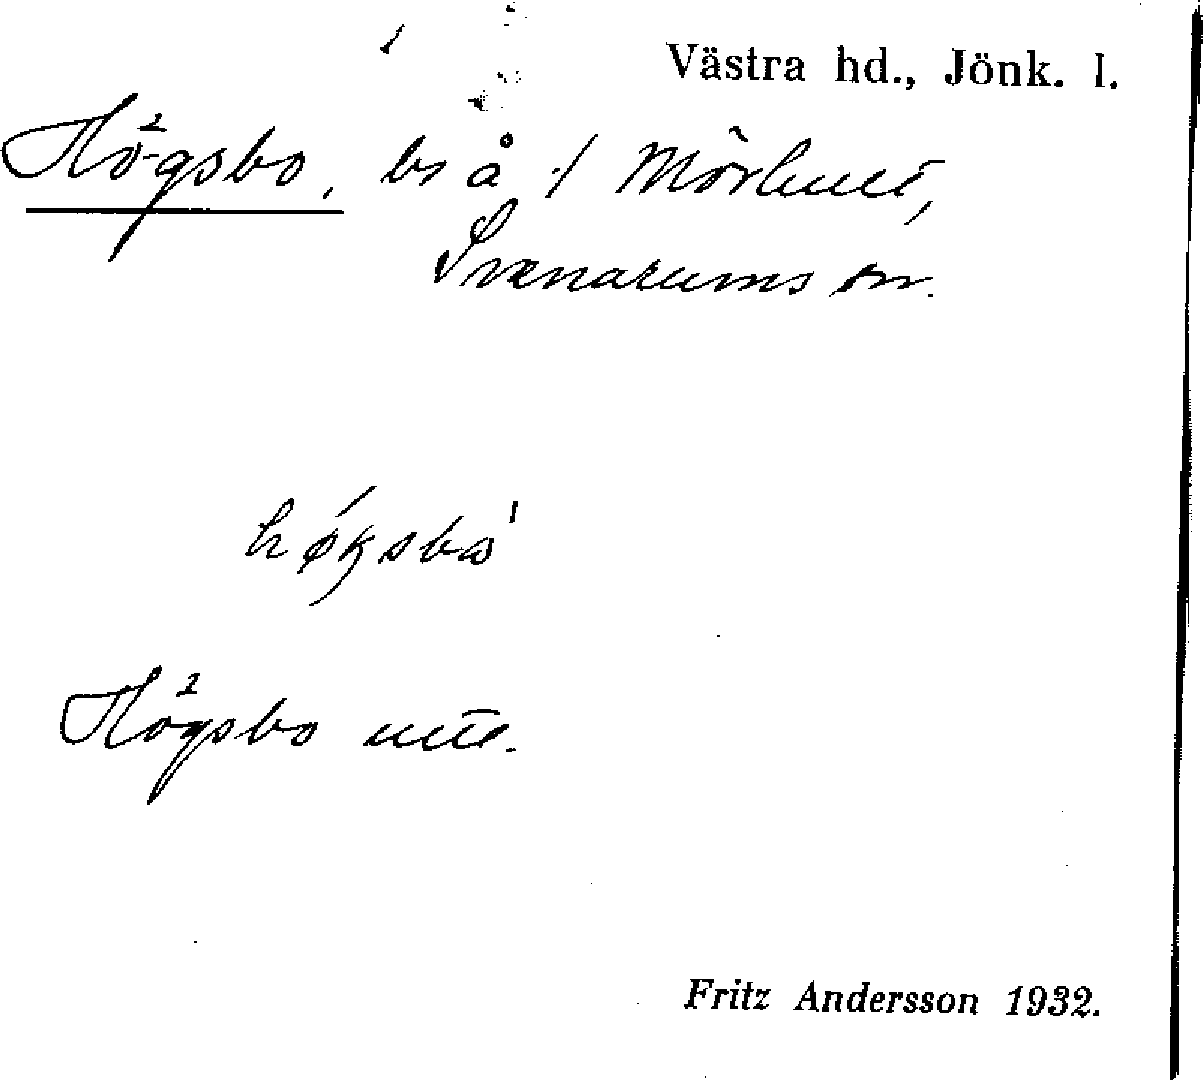 Västra hd., Jönk. l.
Högsbo, bs å f Mörhult,
Svenarums sn.
høgsbo
Högsbo
Fritz Andersson 1932.